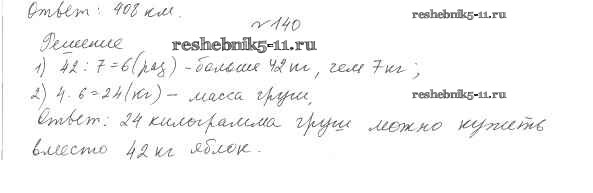 Ответ: 408 км.
№140
reshebnik5-11.ru
Решение
reshebnik5-11.ru
1) 42 : 7 = 6 (раз) - больше 42 кг, чем 7 кг;
2) 4 · 6 = 24 (кг) - масса груш,
reshebnik5-11.ru
Ответ: 24 килограмма груш можно купить
вместо 42 кг яблок.